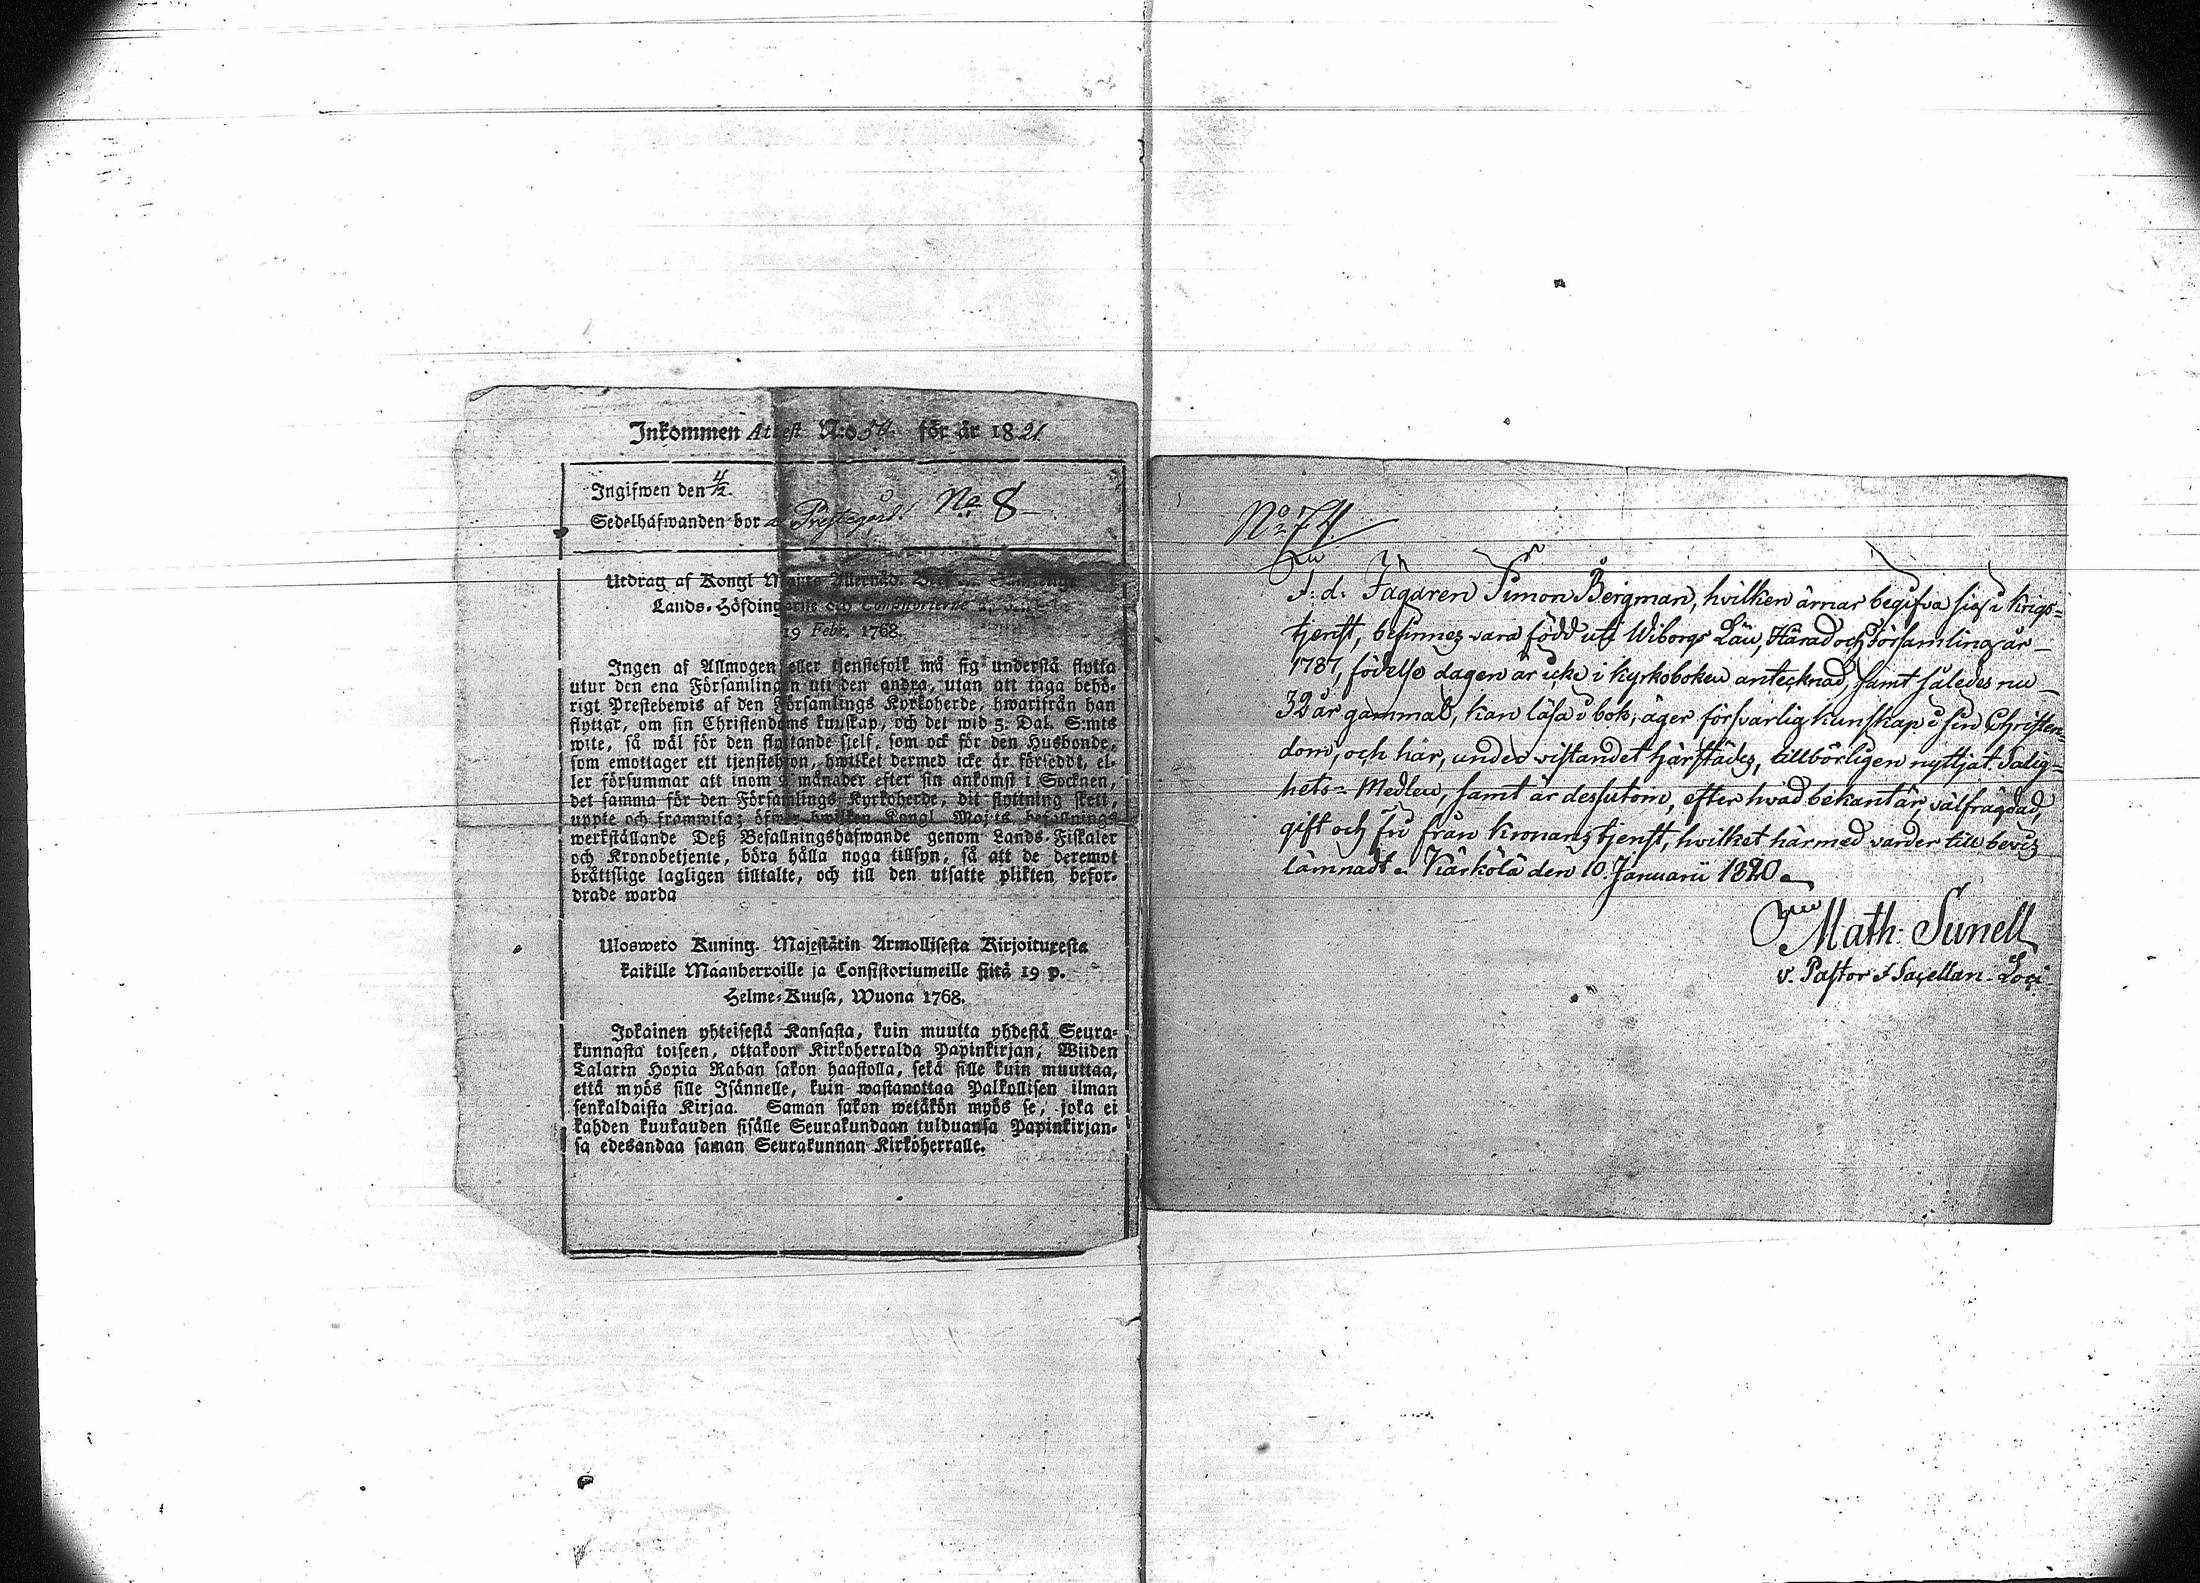 Inkommen Attest N:o 50. för år 1821.
Ingifwen den 4/2.
Sedelhafwanden bor å Prestegård. No 8
Utdrag af Kongl Maj:ts Allernåd.
Lands-Höfdingarne och Consistorierne
19 Febr. 1768.
Ingen af Allmogen eller tjenstefolk må sig understå flytta
utur den ena Församlingen uti den andra, utan att taga behö-
rigt Prestebewis af den Församlings Kyrkoherde, hwarifrån han
flyttar, om sin Christendoms kunskap, och det wid 5. Dal. S:mts
wite, så wäl för den flyttande sjelf, som ock för den Husbonde,
som emottager ett tjenstehjon, hwilket dermed icke är försedt, el-
ler försummar att inom 2 månader efter sin ankomst i Socknen,
det samma för den Församlings Kyrkoherde, dit flyttning skett,
uppte och framwisa; öfwer hwilken Kongl Maj:ts befallnings
werkställande Deß Befallningshafwande genom Lands-Fiskaler
och Kronobetjente, böra hålla noga tillsyn, så att de deremot
brättslige lagligen tilltalte, och till den utsatte plikten befor-
drade warda
Ulosweto Kuning. Majestätin Armollisesta Kirjoituxesta
kaikille Maanherroille ja Consistoriumeille siitä 19 p.
Helme-Kuusa, Wuona 1768.
Jokainen yhteisestä Kansasta, kuin muutta yhdestä Seura-
kunnasta toiseen, ottakoon Kirkoherralda Papinkirjan, Wiiden
Talarin Hopia Rahan sakon haastolla, sekä sille kuin muuttaa,
että myös sille Isännelle, kuin wastanottaa Palkollisen ilman
senkaldaista Kirjaa. Saman sakon wetäkön myös se, joka ei
kahden kuukauden sisälle Seurakundaan tulduansa Papinkirjan-
sa edesandaa saman Seurakunnan Kirköherralle.
No 74.
F: d: Jägaren Simon Bergman, hvilken ärnar begifva sig i krigs-
tjenst, befinnes vara född uti Wiborgs Län, Härad och Församling år
1787, födelse dagen är icke i kyrkoboken antecknad, samt således nu
32 år gammal, kan läsa i bok, äger försvarlig kunskap i sin Christen-
dom, och har, under vistandet härstädes, tillbörligen nyttjat Salig-
hets-Medlen, samt är dessutom, efter hvad bekant är, välfrägdad,
gift och fri från Kronans tjenst, hvilket härmed varder till bevis
lämnadt. Kärkölä den 10. Januarii 1820.
Math. Sunell
v. Pastor & Sacellan. Loci.